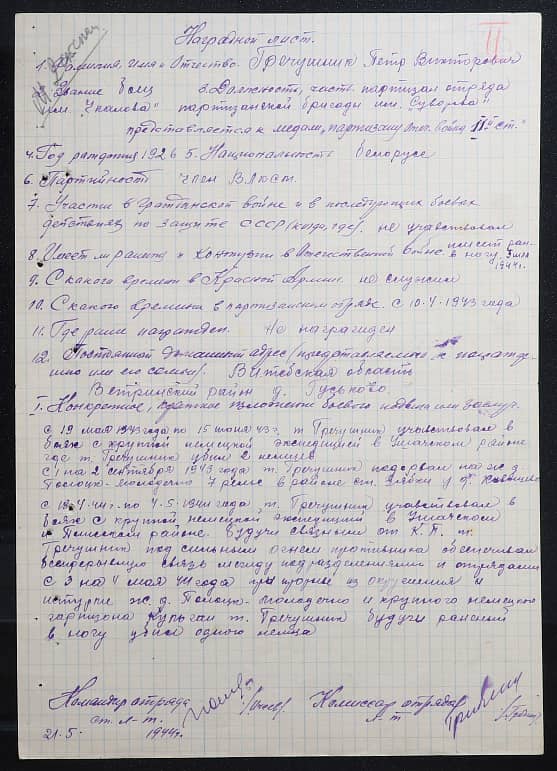 II
Наградной лист.
1. Фамилия, имя и Отчество. Гречушник Пётр Викторович
2. Звание боец 3. Должность, часть партизан отряда
им. "Чкалова" партизанской бригады им. "Суворова"
представляется к медали, партизану Отеч. войны II ст."
4. Год рождения 1926 5. Национальность белорусс
6. Партийность член ВЛКСМ.
7. Участие в Гражданской войне и в последующих боевых
действиях по защите СССР (когда, где). не участвовал
8. Имеет ли ранения и контузии в Отечественной войне. имеет ран. в ногу. 5 мая 1944 г.
9. С какого времени в Красной Армии. не служил
10. С какого времени в партизанском отряде. С 10.V-1943 года
11. Где ранее награжден. Не награжден
12. Постоянный домашний адрес (представляемого к награжде-
нию или его семьи). Витебская область
Ветринский район д. Гуськово.
I. Конкретное, краткое изложение боевого подвига или заслуг.
С 19 мая 1943 года по 15 июня 43 г. т. Гречушник учавствовал в
боях с крупной немецкой экспедицией в Ушачском районе
где т. Гречушник убил 2 немцев
С 1 на 2 сентября 1943 года т. Гречушник подорвал на ж.д.
Полоцк-Молодечно 7 рельс в районе ст. Зябки у д.
по 4-5-1944 года, т. Гречушник учавствовал в
боях с крупной, немецкой экспедицией в Ушачском
и Полотском районе. Будучи связным от К.П. т.
Гречушник под сильным огнем противника обеспечивал
бесперерывную связь между подразделениями и отрядами
С 3 на 4 мая 44 года при прорыве из окружения и
штурме ж.д. Полоцк-Молодечно и крупного немецкого
гарнизона т. Гречушник будучи раненый
в ногу убил одного немца
Командир отряда Комиссар отряда
ст. л-т. л-т
21.5. 1944 г.